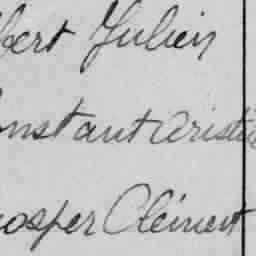 bert Julien
onstant Aristi
rosper Clément